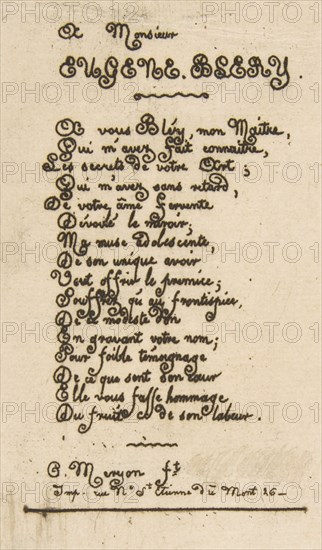 A Monsieur
EUGENE. BLERY.
A vous Bléry, mon Maître,
Qui m'avez fait connaitre,
Les secrets de votre Art;
Qui m'avez sans retard,
De votre âme fervente
Dévoilé le miroir;
Ma muse adolescente,
De son unique avoir
Veut offrir le premice;
Souffrez qu'au frontispice,
De ce modeste don
En gravant votre nom;
Pour foible témoignage
De ce que sent son cœur
Elle vous fasse hommage
Du fruit de son labeur.
C. Meryon ft
Imp. rue Ne St Etienne du Mont 26
PHOTO12